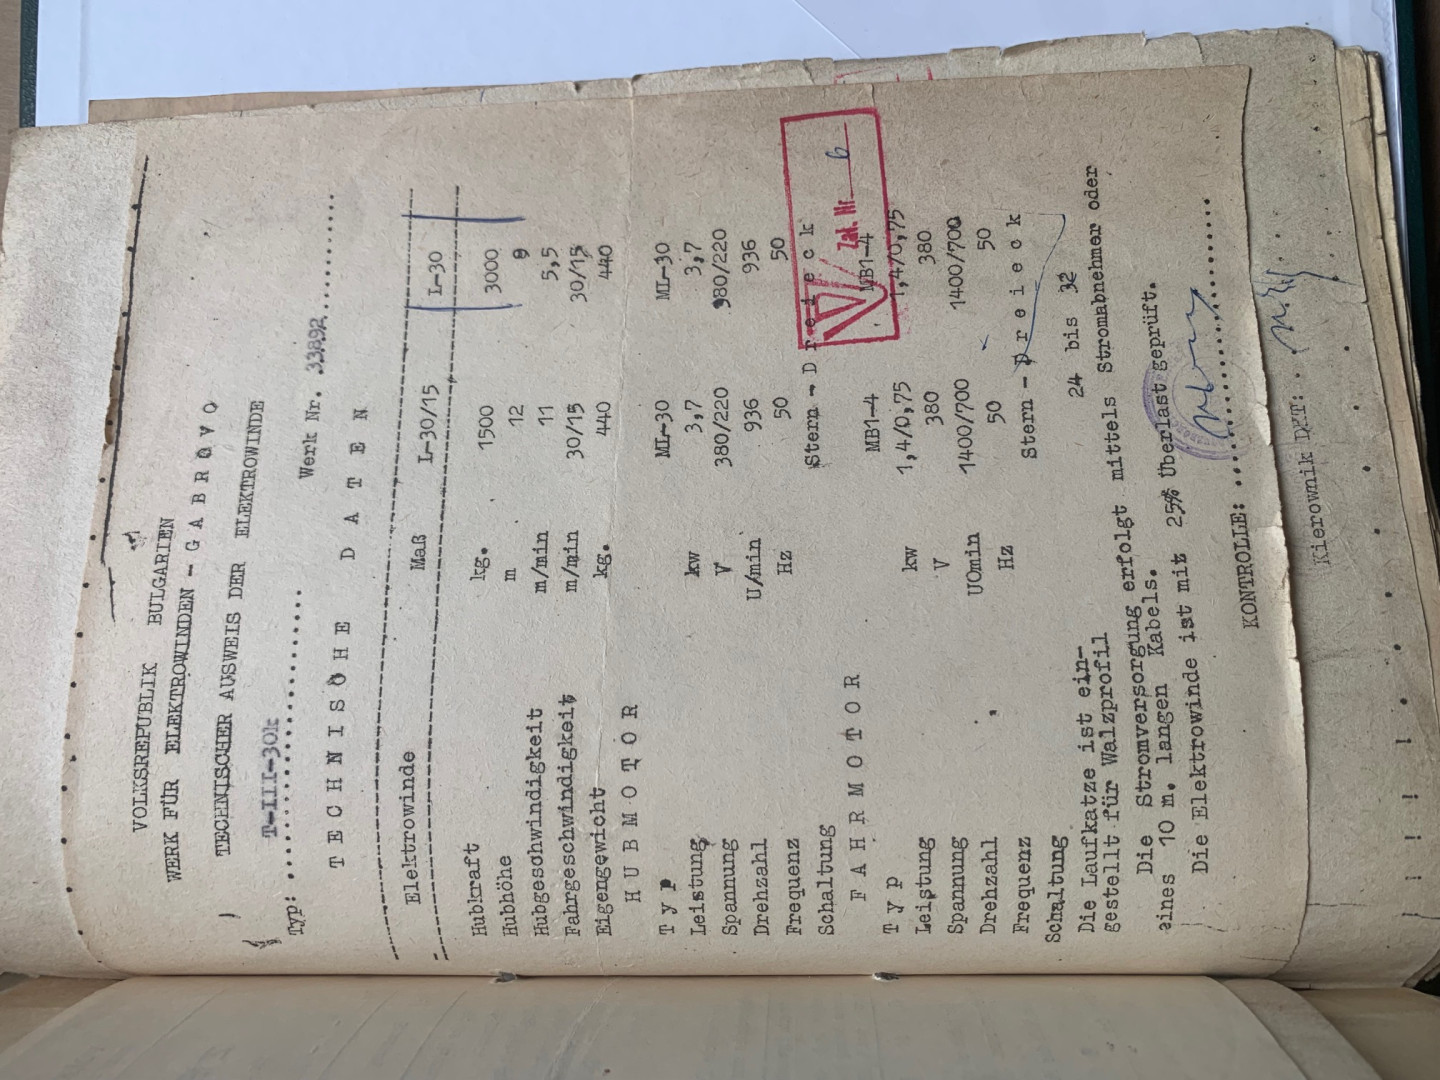 VOLKSREPUBLIK BULGARIEN
WERK FÜR ELEKTROWINDEN - G A B R O V O
TECHNISCHER AUSWEIS DER ELEKTROWINDE
Typ: T-III-30k Werk Nr. 33892
T E C H N I S C H E D A T E N
Elektrowinde Maß L-30/15 L-30
Hubkraft kg. 1500 3000
Hubhöhe m 12 9
Hubgeschwindigkeit m/min 11 5,5
Fahrgeschwindigkeit m/min 30/15 30/15
Eigengewicht kg. 440 440
H U B M O T O R
T y p ML-30 ML-30
Leistung kw 3,7 3,7
Spannung V 380/220 380/220
Drehzahl U/min 936 936
Frequenz Hz 50 50
Schaltung Stern - D r e i e c k
Zał. Nr. 6
F A H R M O T O R
T y p MB1-4 MB1-4
Leistung kw 1,4/0,75 1,4/0,75
Spannung V 380 380
Drehzahl UOmin 1400/700 1400/700
Frequenz Hz 50 50
Schaltung Stern - D r e i e c k
Die Laufkatze ist ein-
gestellt für Walzprofil 24 bis 32
Die Stromversorgung erfolgt mittels Stromabnehmer oder
eines 10 m. langen Kabels.
Die Elektrowinde ist mit 25% Überlast geprüft.
KONTROLLE:
Kierownik